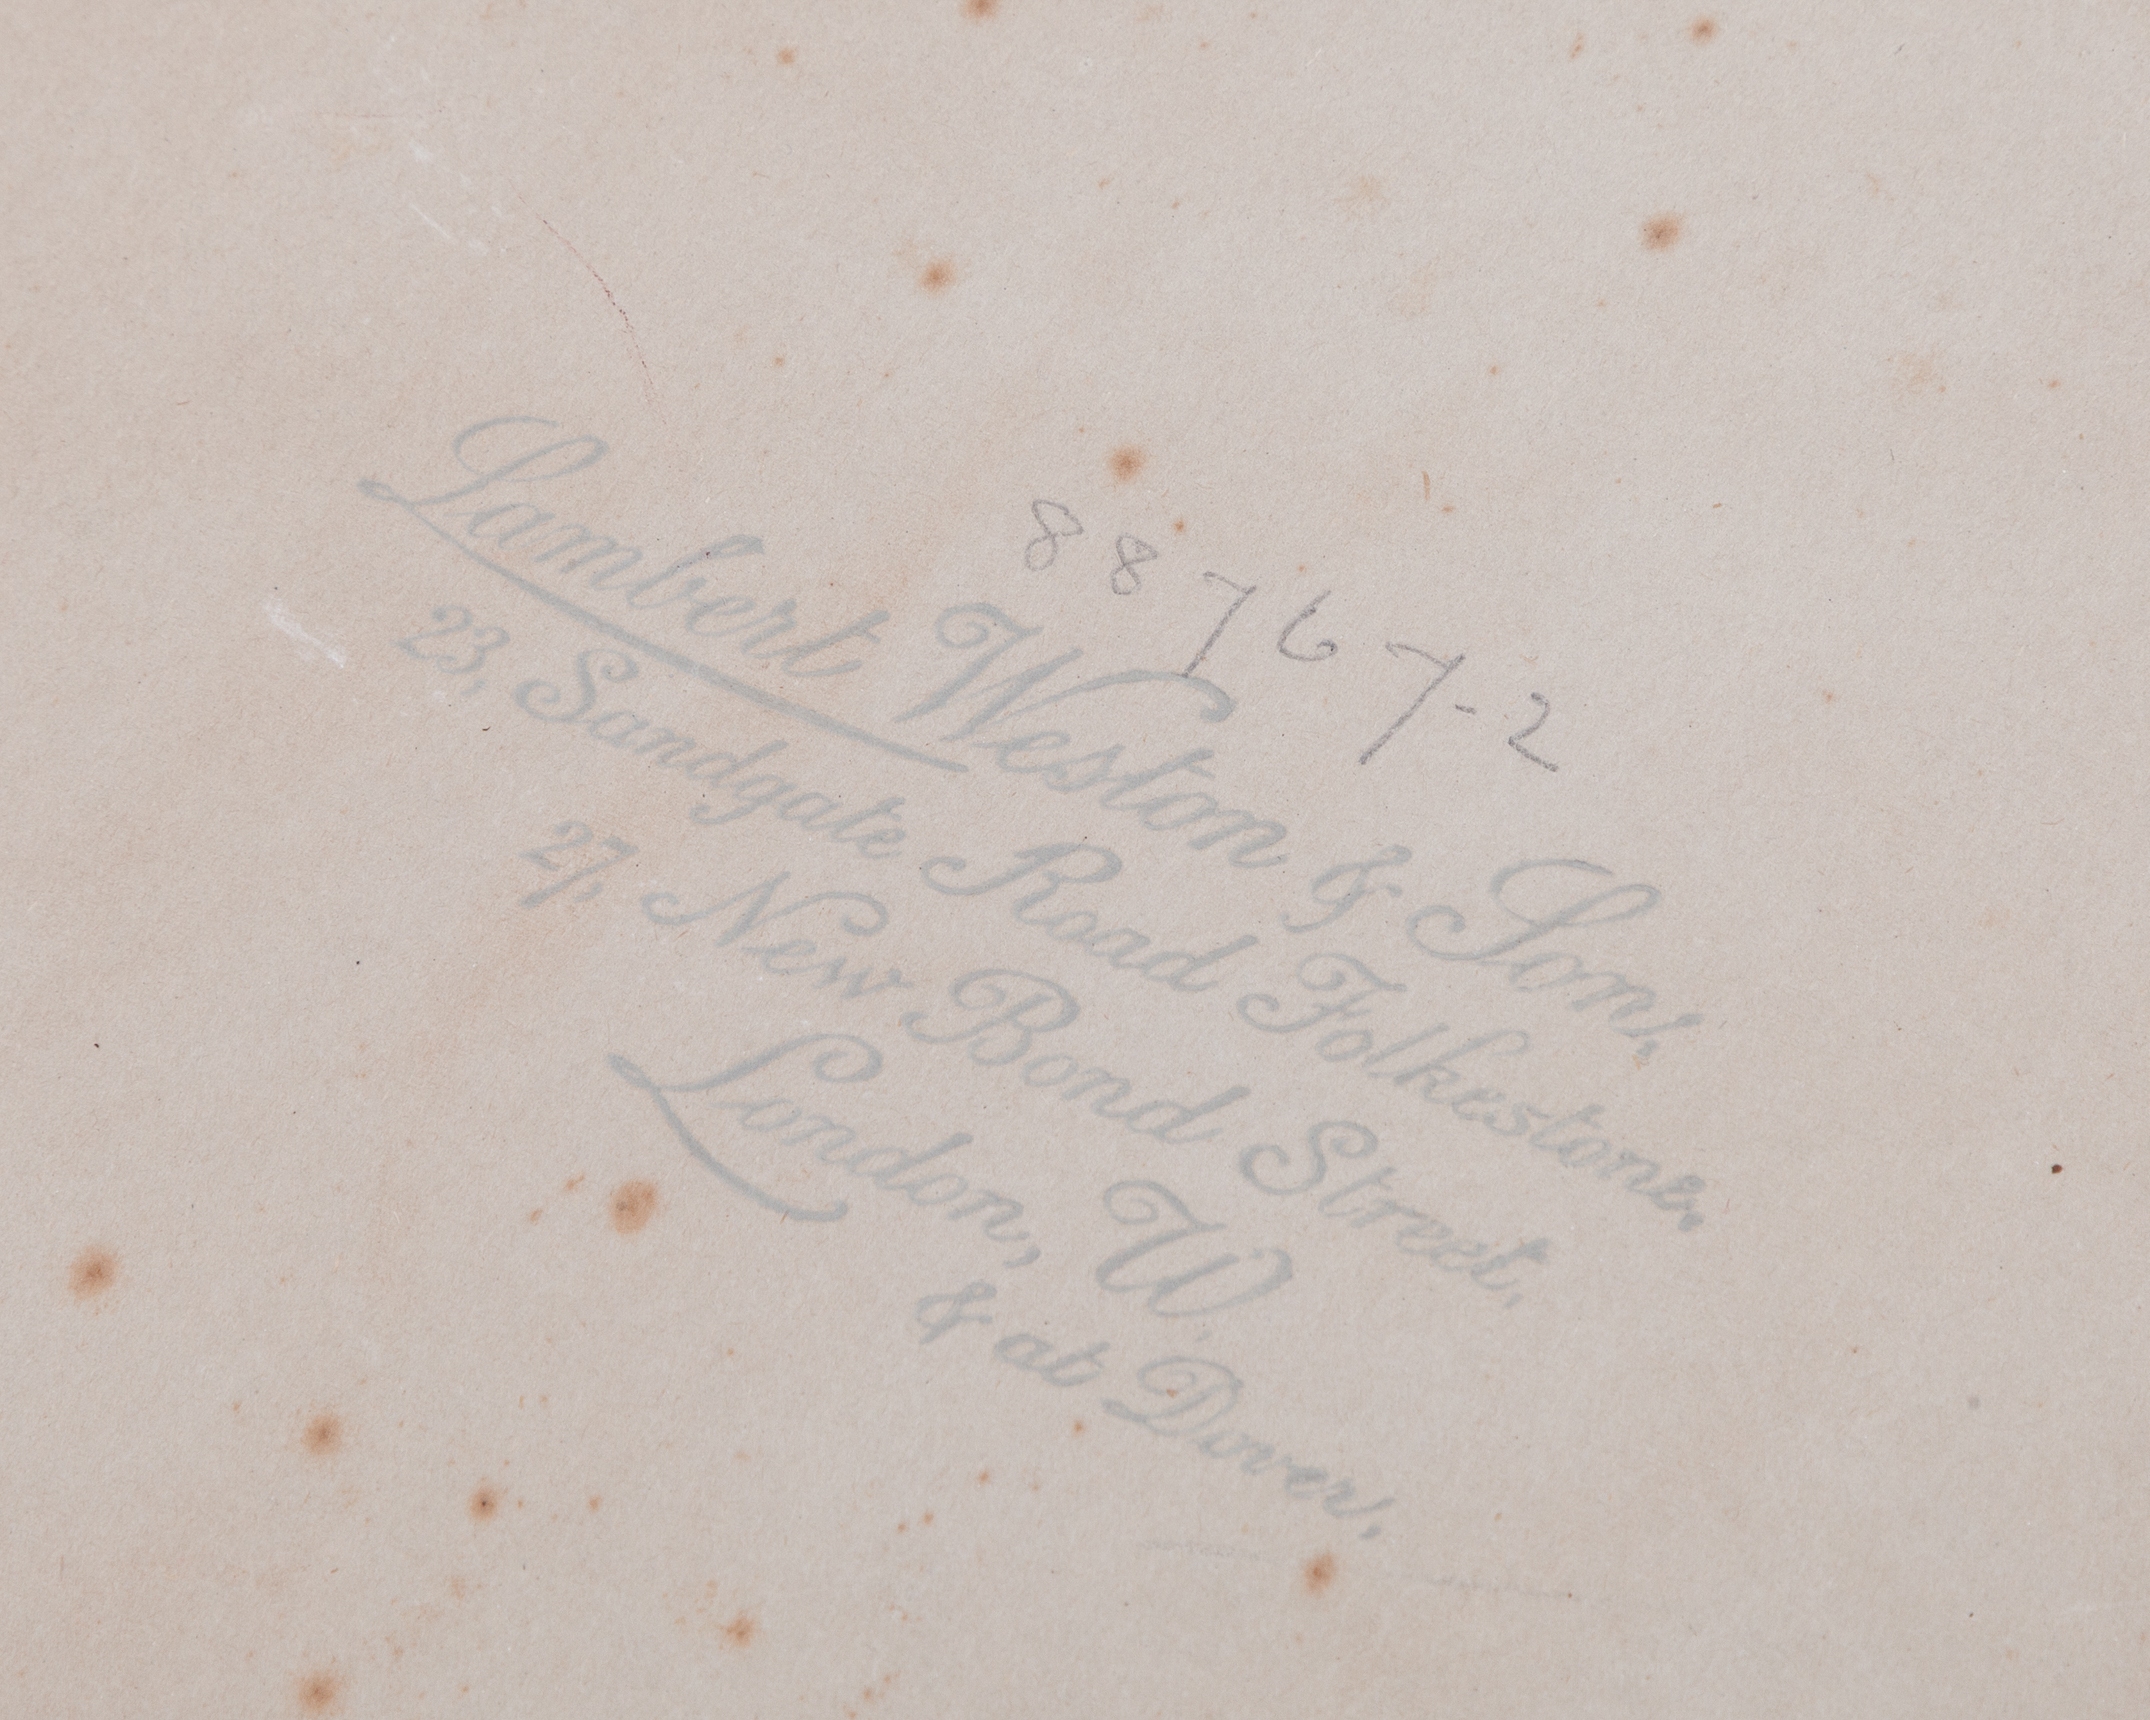 88767-2
Lambert Weston & Son,
23, Sandgate Road Folkestone,
27, New Bond Street,
London, W.
& at Dover.